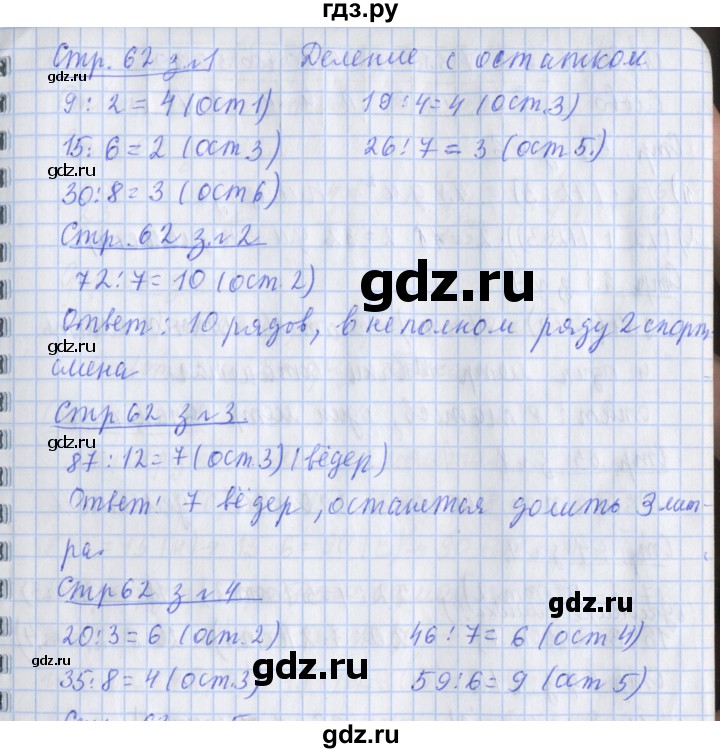 гдз.ру
Стр. 62 з.№1 Деление с остатком.
gdz.ru
9 : 2 = 4 (ост 1) 19 : 4 = 4 (ост. 3)
15 : 6 = 2 (ост. 3) 26 : 7 = 3 (ост 5.)
gdz.ru
30 : 8 = 3 (ост 6)
Стр. 62 з. №2
gdz.ru
72 : 7 = 10 (ост. 2)
Ответ: 10 рядов, в неполном ряду 2 спорт-
gdz.ru
смена
Стр 62 з №3
87 : 12 = 7 (ост. 3) (вёдер)
gdz.ru
Ответ: 7 вёдер, останется долить 3 лит-
ра.
Стр 62 з №4
gdz.ru
20 : 3 = 6 (ост. 2) 46 : 7 = 6 (ост 4)
gdz.ru
gdz.ru
35 : 8 = 4 (ост. 3) 59 : 6 = 9 (ост 5)
gdz.ru